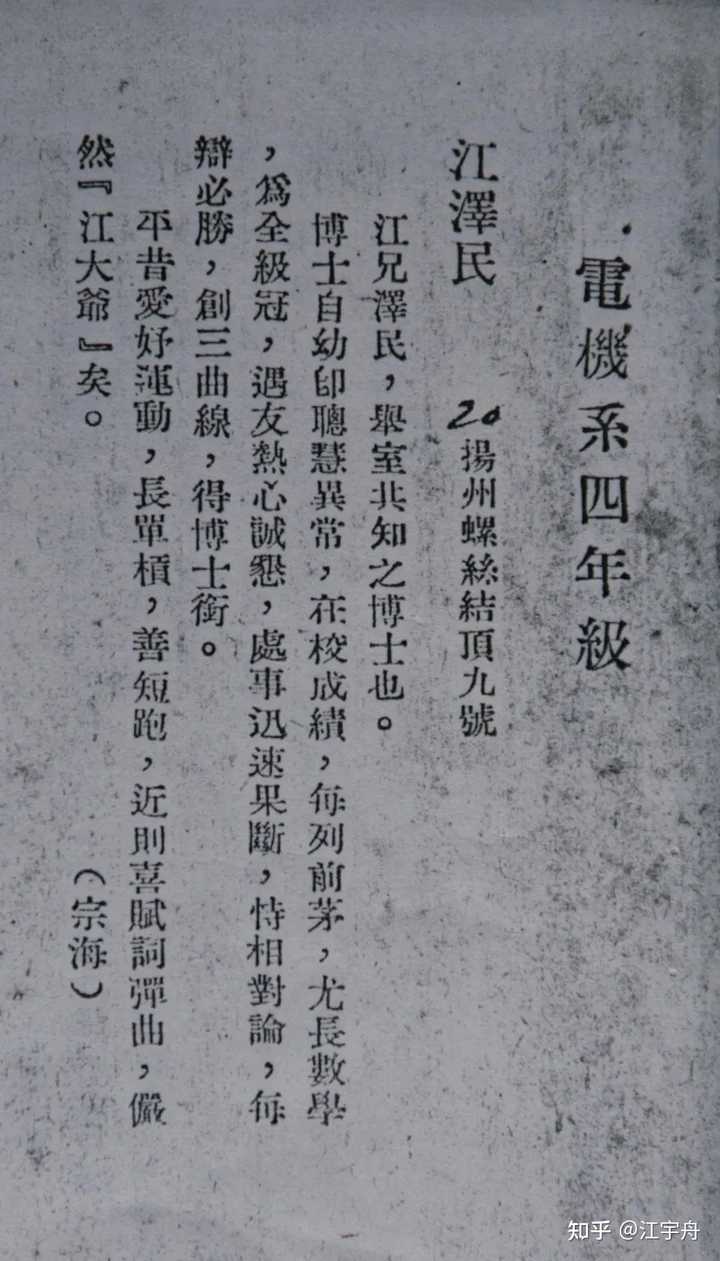 電機系四年級
江澤民　20 揚州螺絲結頂九號
江兄澤民，舉室共知之博士也。
博士自幼卽聰慧異常，在校成績，每列前茅，尤長數學
，爲全級冠，遇友熱心誠懇，處事迅速果斷，恃相對論，每
辯必勝，創三曲線，得博士銜。
平昔愛好運動，長單槓，善短跑，近則喜賦詞彈曲，儼
然『江大爺』矣。　（宗海）
知乎 @江宇舟